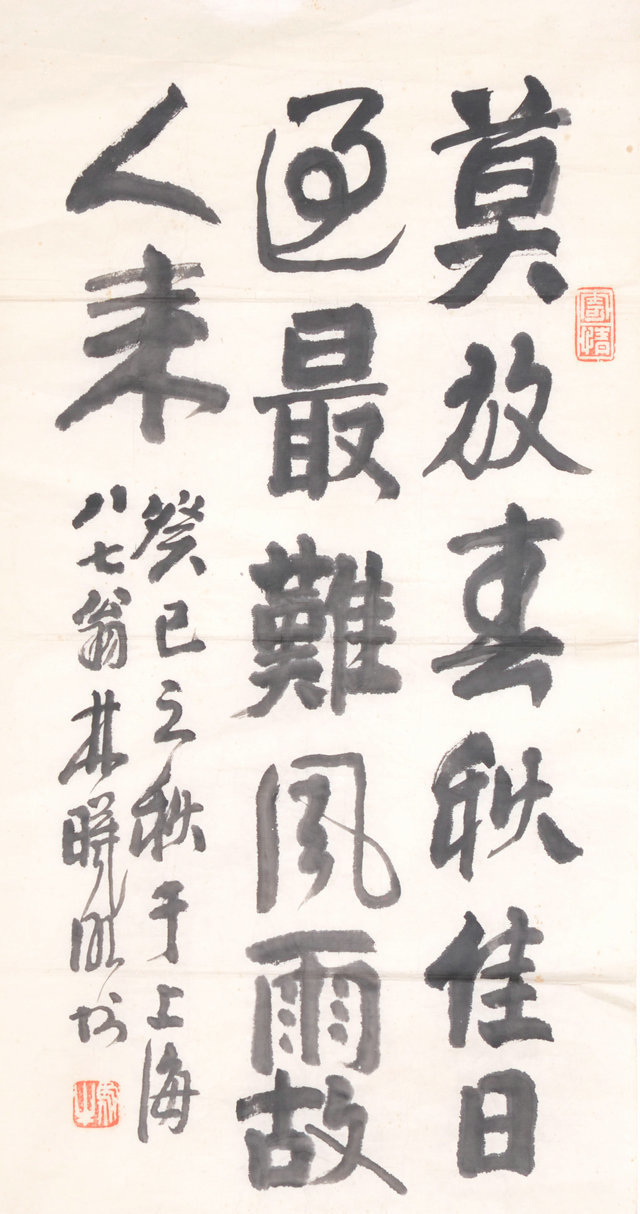 莫放春秋佳日
過最難風雨故
人来
癸巳之秋于上海
八七翁林曦明